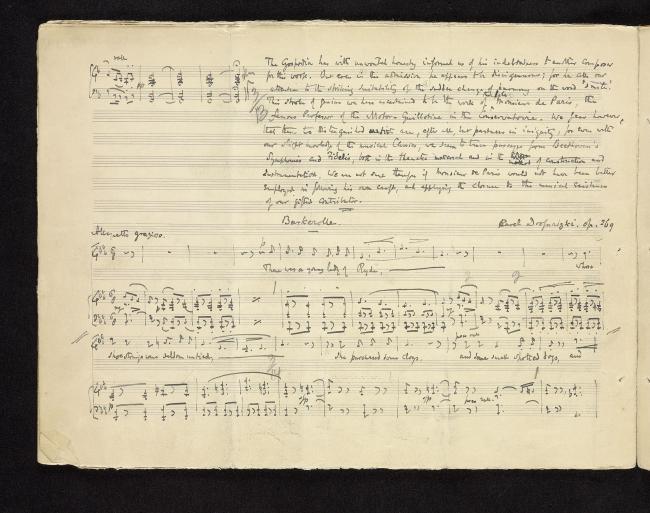 The Gospodin has with unwonted honesty informed us of his indebtedness to another composer
for this work. But even in this admission he appears to be disingenuous; for he calls our
attention to the striking suitability of the sudden change of harmony on the word "smile".
This stroke of genius we have ascertained to be the work of Monsieur de Paris, the
famous Professor of the Motor Guillotine in the Conservatoire. We fear however,
that these two distinguished are, after all, but partners in iniquity; for even with
our slight knowledge of the musical Classics, we seem to trace passages from Beethoven's
Symphonies and Fidelio, both in the thematic material and in the of construction and
instrumentation. We are not sure though if Monsieur de Paris would not have been better
employed in following his own craft, and applying the closure to the musical existence
of our gifted contributor.
Baskerolle.
Op. 269
Allegretto grazioso.
There was a young lady of Ryde, whose
shoestrings were seldom untied, She purchased some clogs, and some small spotted dogs, and
poco rall.
poco rall.